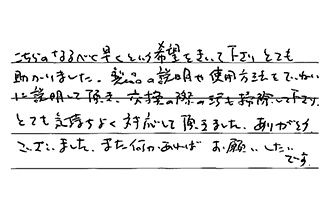 こちらのなるべく早くという希望をきいて下さり とても
助かりました。製品の説明や使用方法をていねい
に説明して頂き、交換の際の 掃除して下さり
とても気持ちよく対応して頂きました。ありがとう
ございました。また何かあれば お願いしたい
です。